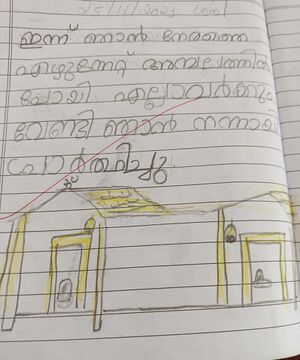 25/11/2021 ശനി
ഇന്ന് ഞാൻ നേരത്തെ
എഴുന്നേറ്റ് അമ്പലത്തിൽ
പോയി എല്ലാവർക്കും
വേണ്ടി ഞാൻ നന്നായി
പ്രാർത്ഥിച്ചു